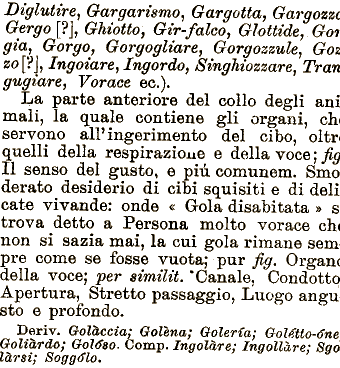 Diglutire, Gargarismo, Gargotta, Gargozzo
Gergo [?], Ghiotto, Gir-falco, Glottide, Gor
gia, Gorgo, Gorgogliare, Gorgozzule, Goz
zo [?], Ingoiare, Ingordo, Singhiozzare, Tran
gugiare, Vorace ec.).
La parte anteriore del collo degli ani
mali, la quale contiene gli organi, che
servono all'ingerimento del cibo, oltre
quelli della respirazione e della voce; fig
Il senso del gusto, e piú comunem. Smo
derato desiderio di cibi squisiti e di deli
cate vivande: onde « Gola disabitata » s
trova detto a Persona molto vorace che
non si sazia mai, la cui gola rimane sem
pre come se fosse vuota; pur fig. Organo
della voce; per similit. Canale, Condotto
Apertura, Stretto passaggio, Luogo angu
sto e profondo.
Deriv. Golàccia; Golèna; Golería; Golétto-óne
Goliàrdo; Golóso. Comp. Ingolàre; Ingollàre; Sgo
làrsi; Soggólo.